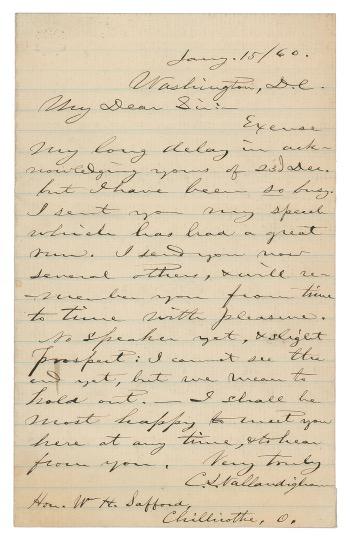 Jany. 15/60.
Washington, D.C.
My Dear Sir:-
Excuse
my long delay in ack-
nowledging yours of 23d Dec.
but I have been so busy.
I sent you my speech
which has had a great
run. I send you now
several others, & will re-
-member you from time
to time with pleasure.
No speaker yet, & slight
prospect: I cannot see the
end yet, but we mean to
hold out. — I shall be
most happy to meet you
here at any time, & to hear
from you. Very truly
C. L. Vallandigham
Hon. W. H. Safford,
Chillicothe, O.